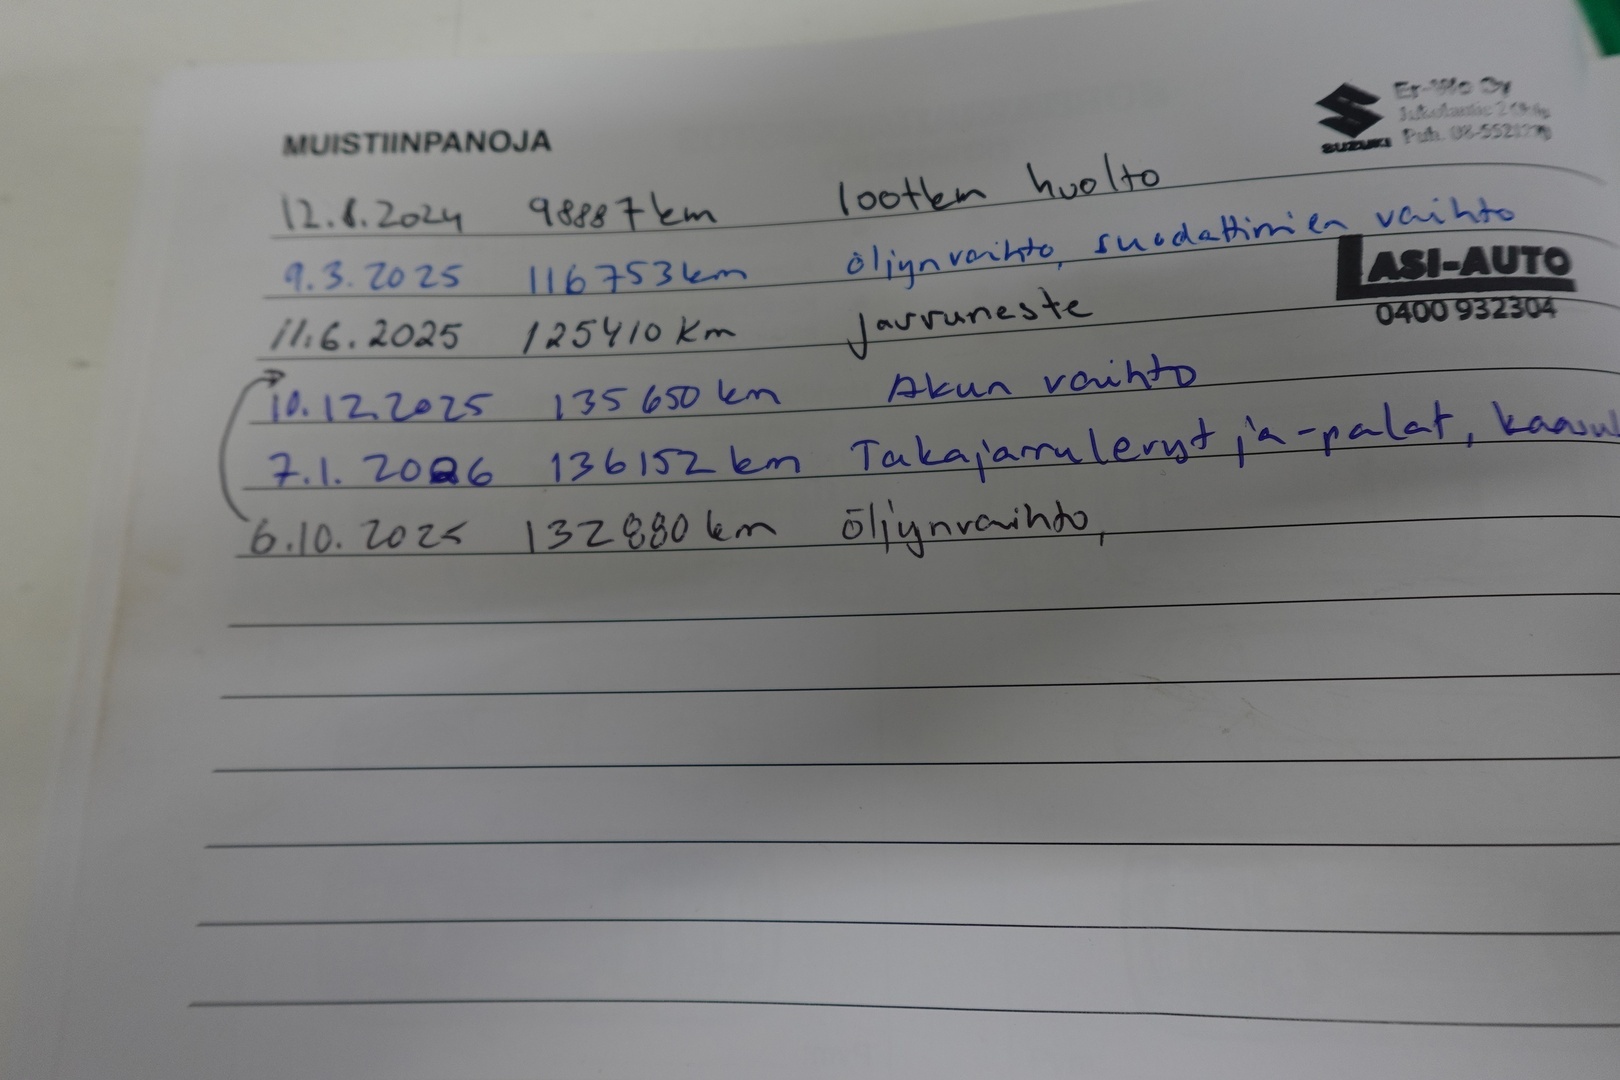 MUISTIINPANOJA
SUZUKI
12.8.2024 98887 km 100tkm huolto
9.3.2025 116753 km öljynvaihto, suodattimien vaihto
LASI-AUTO
0400 932304
11.6.2025 125410 km jarruneste
10.12.2025 135650 km Akun vaihto
7.1.2026 136152 km Takajarrulevyt ja -palat,
6.10.2025 132880 km öljynvaihto,